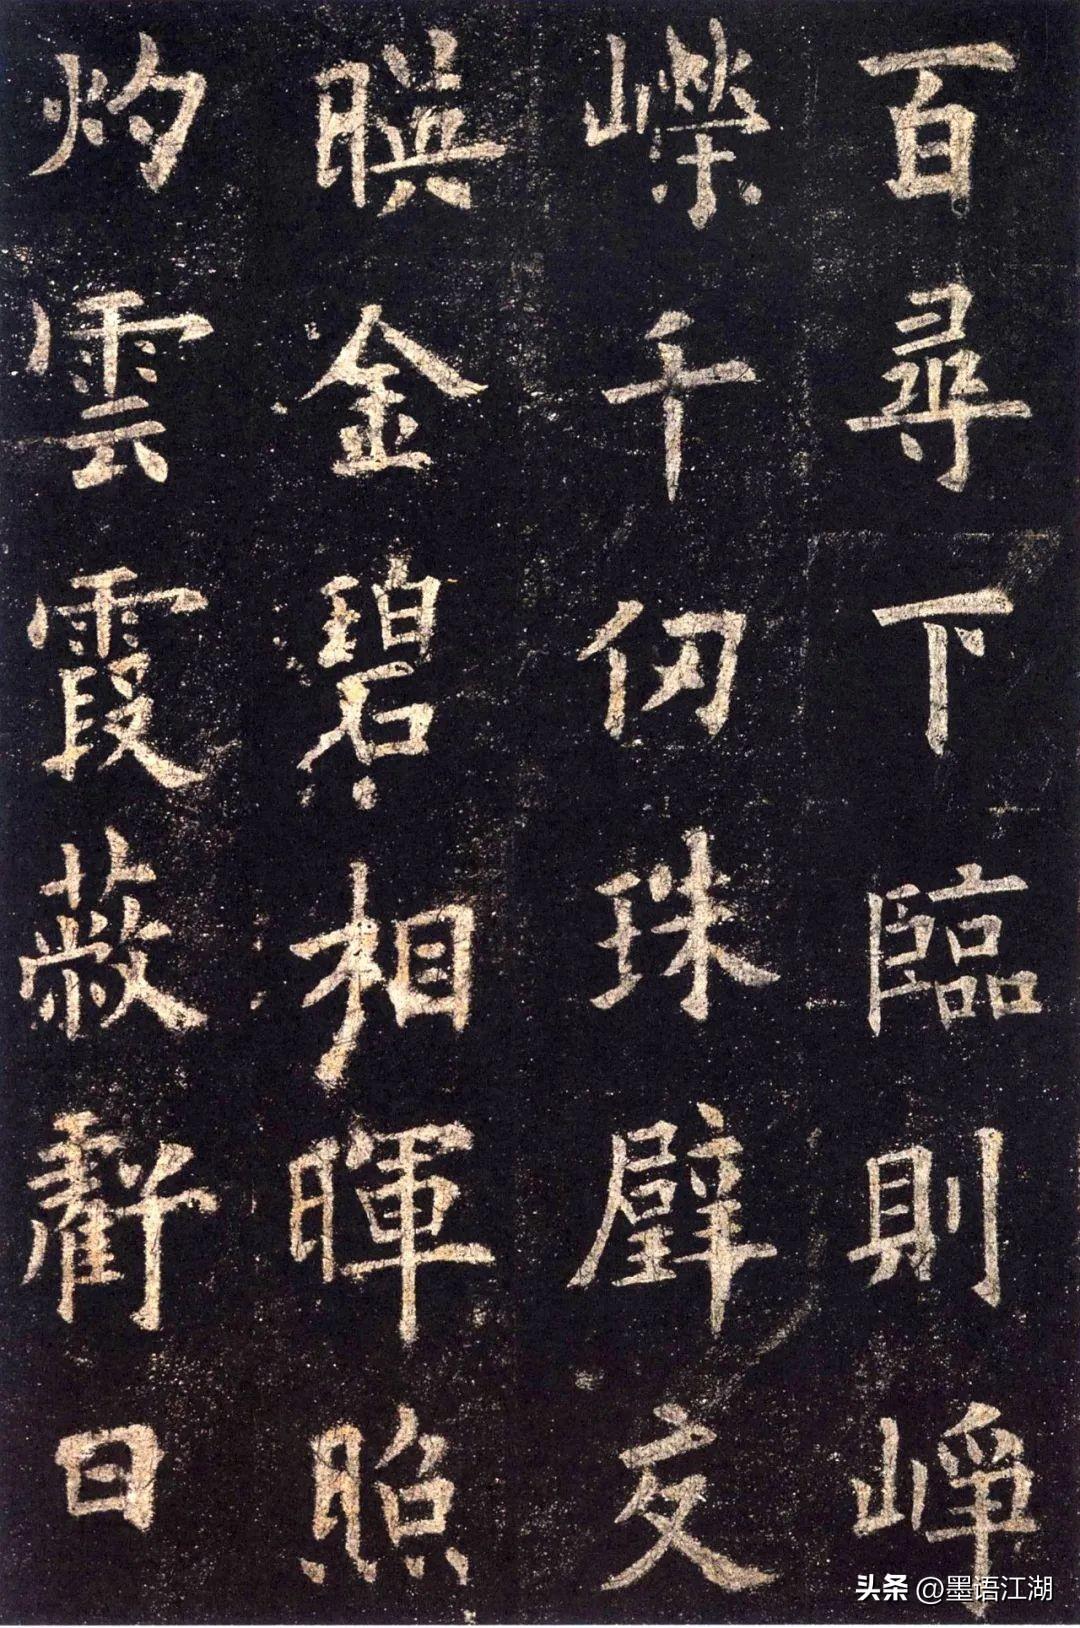 百尋下臨則崢
嶸千仞珠璧交
暎金碧相暉照
灼雲霞蔽虧日
头条 @墨语江湖